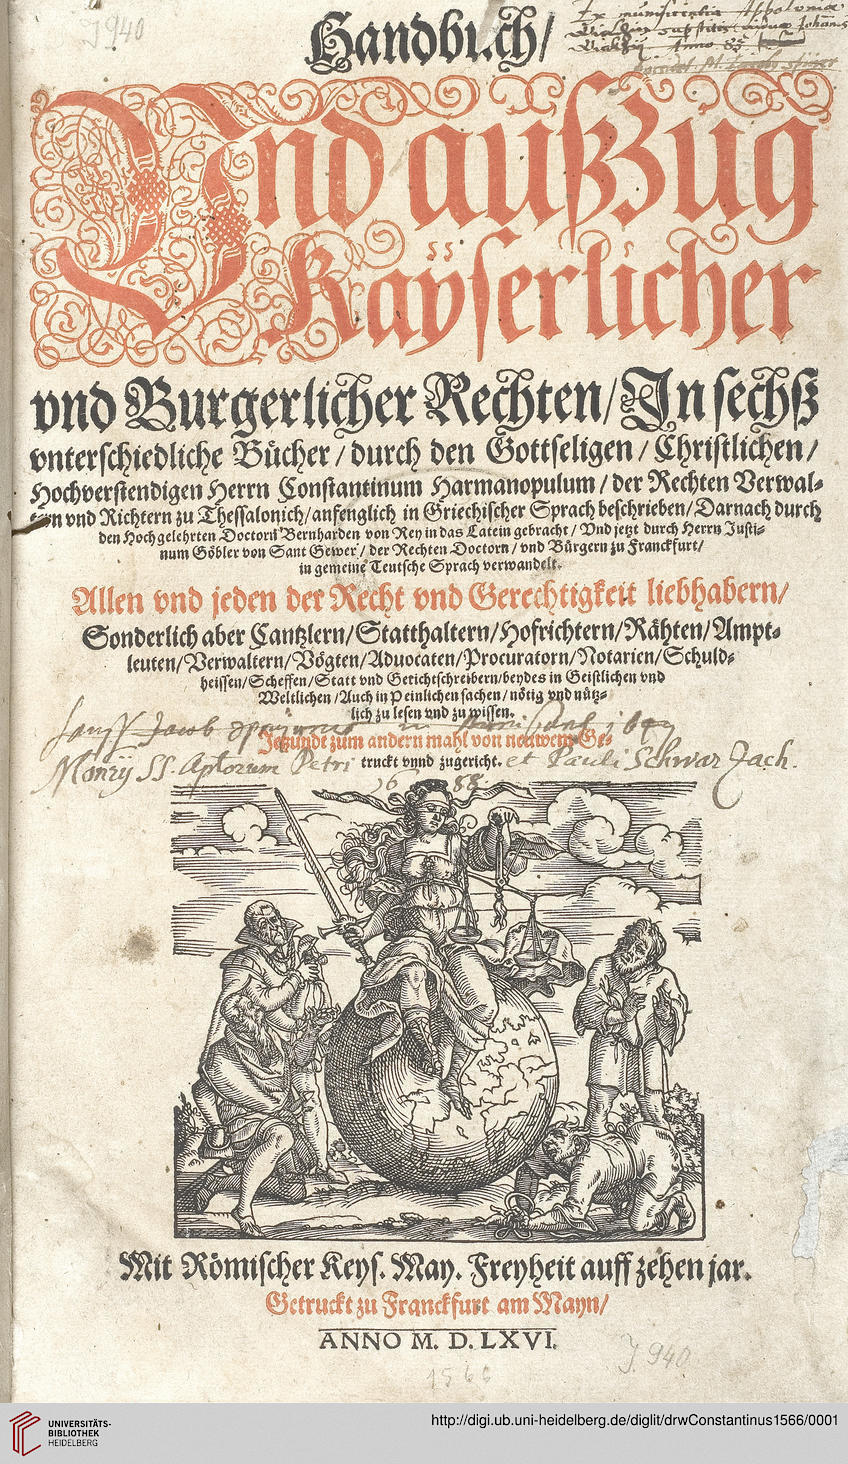 J 940
Handbuch/
Vnd außzug
Kayserlicher
vnd Burgerlicher Rechten/ In sechß
vnterschiedliche Bücher/ durch den Gottseligen/ Christlichen/
Hochverstendigen Herrn Constantinum Harmanopulum/ der Rechten Verwal-
tern vnd Richtern zu Thessalonich/ anfenglich in Griechischer Sprach beschrieben/ Darnach durch
den Hochgelehrten Doctorn Bernharden von Rey in das Latein gebracht/ Vnd jetzt durch Herrn Justi-
num Göbler von Sant Gewer/ der Rechten Doctorn/ vnd Bürgern zu Franckfurt/
in gemeine Teutsche Sprach verwandelt.
Allen vnd jeden der Recht vnd Gerechtigkeit liebhabern/
Sonderlich aber Cantzlern/ Statthaltern/ Hofrichtern/ Rähten/ Ampt-
leuten/ Verwaltern/ Vögten/ Aduocaten/ Procuratorn/ Notarien/ Schuld-
heissen/ Scheffen/ Statt vnd Gerichtschreibern/ beydes in Geistlichen vnd
Weltlichen/ Auch in Peinlichen sachen/ nötig vnd nütz-
lich zu lesen vnd zu wissen.
Jetzundt zum andern mahl von neuwem Ge-
truckt vnnd zugericht.
SS. Aptorum Petri et Pauli Schwarzach.
16 88
Mit Römischer Keys. May. Freyheit auff zehen jar.
Getruckt zu Franckfurt am Mayn/
ANNO M. D. LXVI.
J. 940
1566
UNIVERSITÄTS-
BIBLIOTHEK
HEIDELBERG
http://digi.ub.uni-heidelberg.de/diglit/drwConstantinus1566/0001